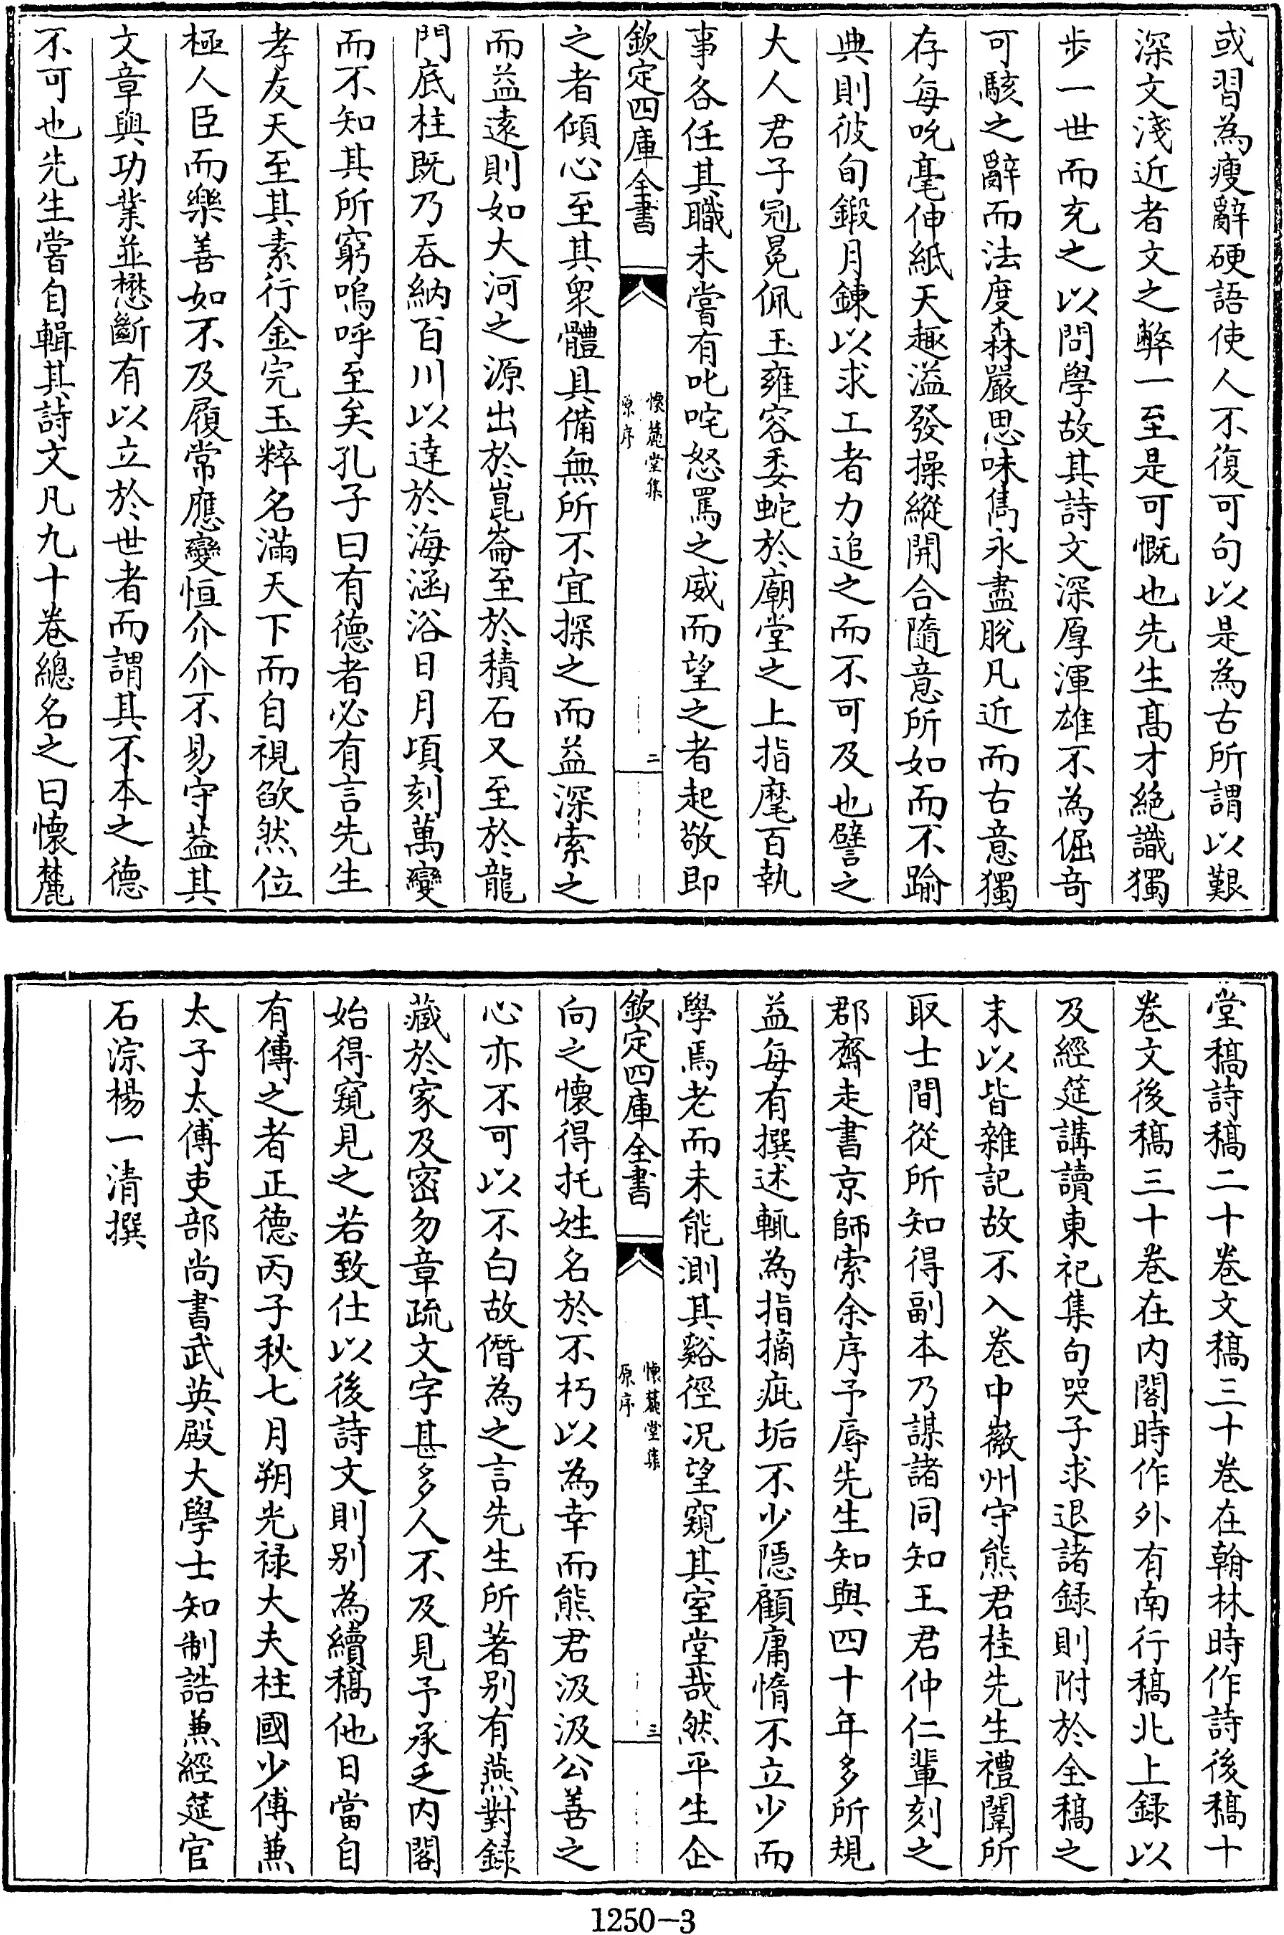 或習為瘦辭硬語使人不復可句以是為古所謂以艱
深文淺近者文之弊一至是可慨也先生髙才絶識獨
步一世而充之以問學故其詩文深厚渾雄不為倔竒
可駭之辭而法度森嚴思味雋永盡脫凡近而古意獨
存每吮毫伸紙天趣溢發操縱開合隨意所如而不踰
典則彼旬鍛月鍊以求工者力追之而不可及也譬之
大人君子冠冕佩玉雍容委蛇於廟堂之上指麾百執
事各任其職未嘗有叱咤怒罵之威而望之者起敬即
欽定四庫全書
懷麓堂集
原序
三
之者傾心至其衆體具備無所不宜探之而益深索之
而益遠則如大河之源出於崑崙至於積石又至於龍
門底柱既乃吞納百川以達於海涵浴日月頃刻萬變
而不知其所窮嗚呼至矣孔子曰有德者必有言先生
孝友天至其素行金完玉粹名滿天下而自視欿然位
極人臣而樂善如不及履常應變恒介介不易守葢其
文章與功業並懋斷有以立於世者而謂其不本之德
不可也先生嘗自輯其詩文凡九十卷總名之曰懷麓
堂稿詩稿二十卷文稿三十卷在翰林時作詩後稿十
卷文後稿三十卷在内閣時作外有南行稿北上録以
及經筵講讀東祀集句哭子求退諸録則附於全稿之
末以皆雜記故不入卷中徽州守熊君桂先生禮闈所
取士間從所知得副本乃謀諸同知王君仲仁輩刻之
郡齋走書京師索余序予辱先生知與四十年多所規
益每有撰述輒為指摘疵垢不少隱顧庸惰不立少而
學焉老而未能測其谿徑况望窺其室堂哉然平生企
欽定四庫全書
懷麓堂集
原序
三
向之懷得托姓名於不朽以為幸而熊君汲汲公善之
心亦不可以不白故僭為之言先生所著别有燕對録
藏於家及密勿章疏文字甚多人不及見予承乏内閣
始得窺見之若致仕以後詩文則别為續稿他日當自
有傳之者正德丙子秋七月朔光禄大夫柱國少傅兼
太子太傅吏部尚書武英殿大學士知制誥兼經筵官
石淙楊一清撰
1250-3